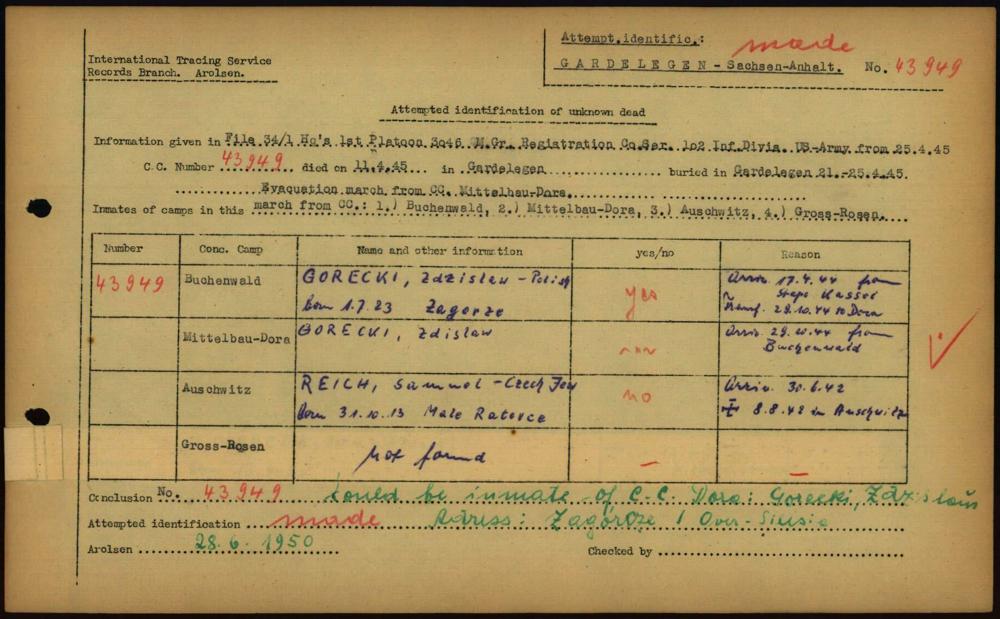 International Tracing Service
Records Branch. Arolsen.
Attempt.identific.: made
GARDELEGEN - Sachsen-Anhalt. No. 43949
Attempted identification of unknown dead
Information given in File 34/1 Hq's 1st Platoon 3046 QM.Gr. Registration Co.Ser. 102 Inf.Divis. US-Army from 25.4.45
C.C. Number 43949 died on 11.4.45 in Gardelegen buried in Gardelegen 21.-25.4.45.
Evacuation march from CC. Mittelbau-Dora.
Inmates of camps in this march from CC.: 1.) Buchenwald, 2.) Mittelbau-Dora, 3.) Auschwitz, 4.) Gross-Rosen.
Number Conc. Camp Name and other information yes/no Reason
43949 Buchenwald GORECKI, Zdzislaw - Polish yes Arriv. 17.4.44 from
Stapo Kassel
Born 1.7.23 Zagorze Transf. 29.10.44 to Dora
Mittelbau-Dora GORECKI, Zdislaw Arriv. 29.10.44 from
Buchenwald
Auschwitz REICH, Sammel - Czech Jew no Arriv. 30.6.42
Born 31.10.13 Male Ratovce 8.8.42 in Auschwitz
Gross-Rosen Not found — —
Conclusion No. 43949 Could be inmate of C.C. Dora: Gorecki, Zdzislaus
Attempted identification made Adress: Zagórze / Over-Silesia
Arolsen 28.6.1950 Checked by